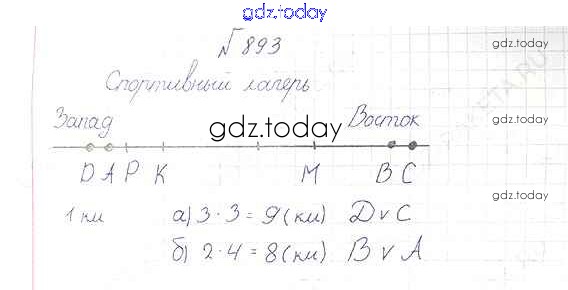 gdz.today
№ 893
gdz.today
Спортивный лагерь
Запад Восток
gdz.today
D A P K M B C
gdz.today
1 км а) 3·3=9(км) D v C
б) 2·4=8(км) B v A
gdz.today